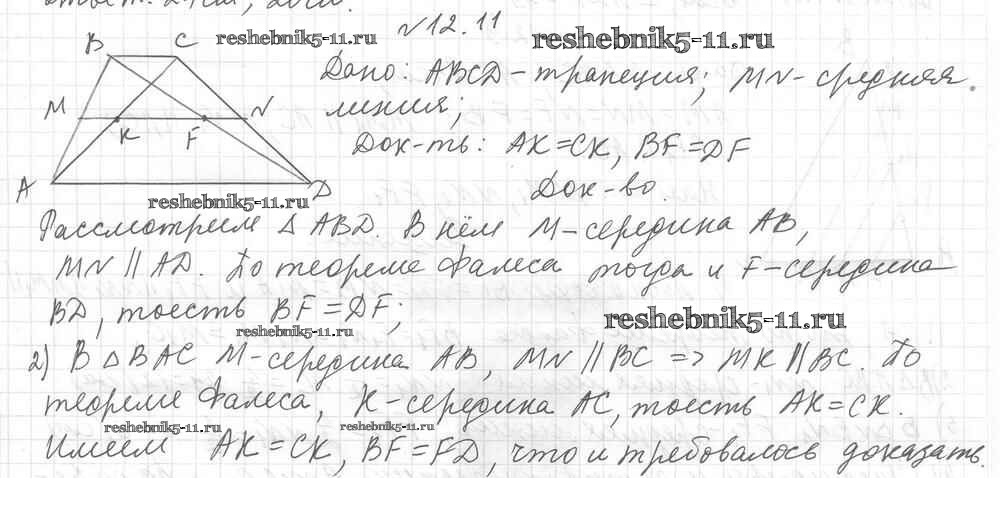 №12.11
reshebnik5-11.ru
reshebnik5-11.ru
B C
M N
K F
A D
Дано: ABCD – трапеция; MN – средняя
линия;
Док-ть: AK=CK, BF=DF
Док-во
reshebnik5-11.ru
Рассмотрим △ ABD. В нём M – середина AB,
MN || AD. По теореме Фалеса тогда и F – середина
BD, тоесть BF = DF;
reshebnik5-11.ru
reshebnik5-11.ru
2) В △ BAC M – середина AB, MN || BC => MK || BC. По
теореме Фалеса, K – середина AC, тоесть AK = CK.
reshebnik5-11.ru
reshebnik5-11.ru
Имеем AK = CK, BF = FD, что и требовалось доказать.